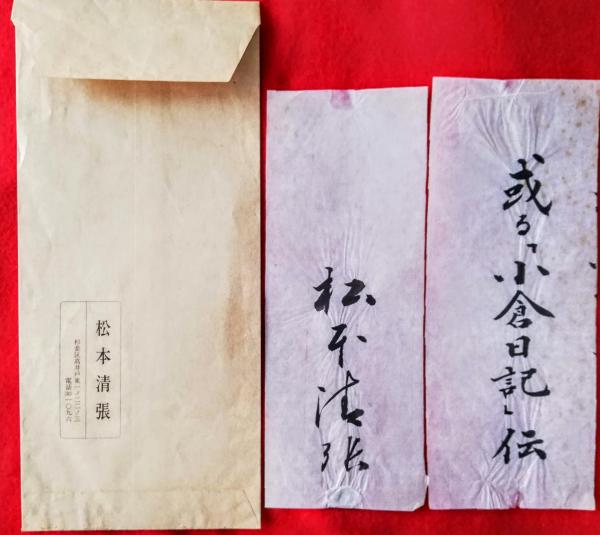 或る「小倉日記」伝
松本清張
松本清張
杉並区高井戸東
電話 一〇九六